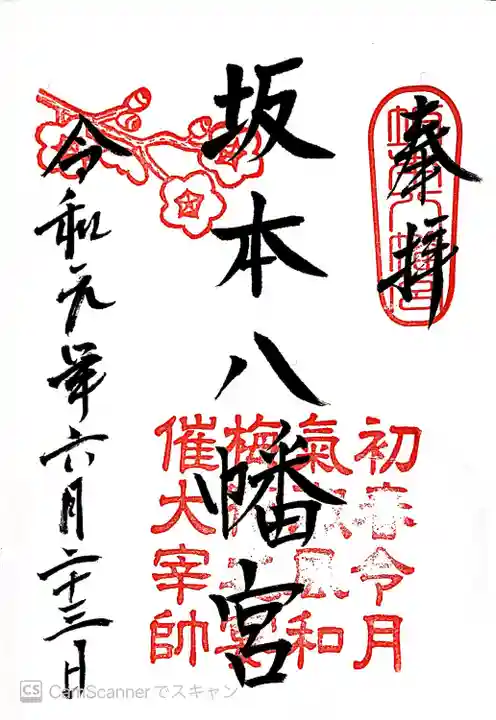 奉拝
坂本八幡宮
令和元年六月二十三日
初春令月
氣 風和
梅
催大宰帥
CS CamScannerでスキャン